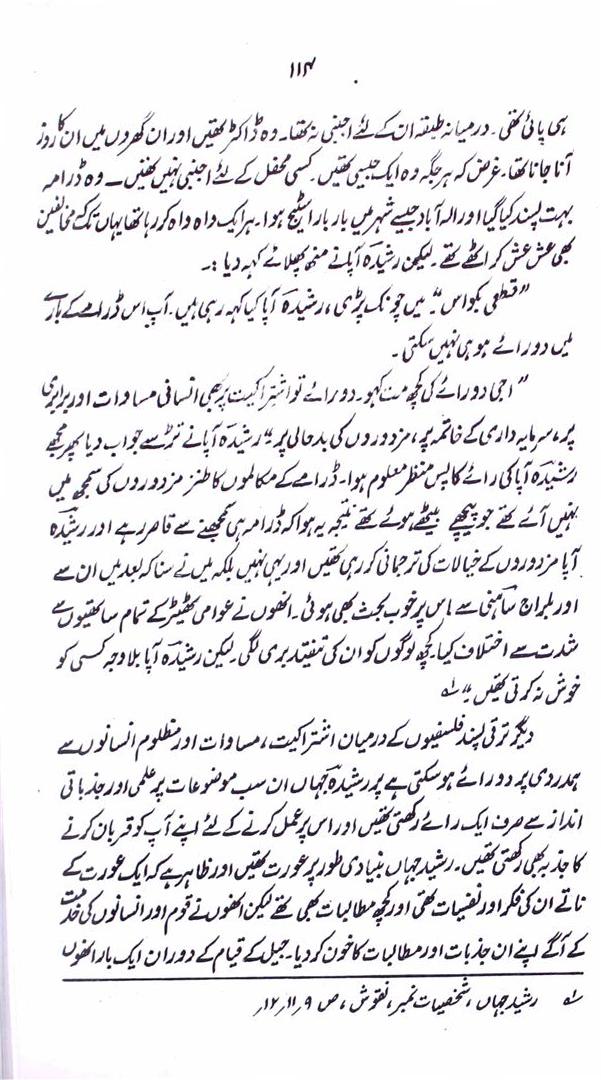 ۱۱۴
ہی پائی تھی۔ درمیانہ طبقہ ان کے لئے اجنبی نہ تھا۔ وہ ڈاکٹر تھیں اور ان گھروں میں ان کا روز
آنا جانا تھا۔ غرض کہ ہر جگہ وہ ایک جیسی تھیں۔ کسی محفل کے لئے اجنبی نہیں تھیں۔ وہ ڈرامہ
بہت پسند کیا گیا اور الہ آباد جیسے شہر میں بار بار اسٹیج ہوا۔ ہر ایک واہ واہ کر رہا تھا یہاں تک کہ مخالفین
بھی عش عش کر اٹھے تھے۔ لیکن رشیدہ آپا نے منھ پھلائے کہہ دیا :۔
”قطعی بکواس“ میں چونک پڑی، رشیدہ آپا کیا کہہ رہی ہیں۔ آپ اس ڈرامے کے بارے
میں دو رائے ہو ہی نہیں سکتی۔
”اجی دو رائے کی کچھ مت کہو۔ دو رائے تو اشتراکیت پر بھی انسانی مساوات اور برابری
پر، سرمایہ داری کے خاتمہ پر، مزدوروں کی بدحالی پر“ رشیدہ آپا نے تڑ سے جواب دیا پھر مجھے
رشیدہ آپا کی رائے کا پس منظر معلوم ہوا۔ ڈرامے کے مکالموں کا طنز مزدوروں کی سمجھ میں
نہیں آئے تھے جو پیچھے بیٹھے ہوئے تھے نتیجہ یہ ہوا کہ ڈرامہ ہی سمجھنے سے قاصر رہے اور رشیدہ
آپا مزدوروں کے خیالات کی ترجمانی کر رہی تھیں اور یہی نہیں بلکہ میں نے سنا کہ بعد میں ان سے
اور بلراج ساہنی سے اس پر خوب بحث بھی ہوئی۔ انھوں نے عوامی تھیٹر کے تمام ساتھیوں سے
شدت سے اختلاف کیا۔ کچھ لوگوں کو ان کی تنقید بری لگی۔ لیکن رشیدہ آپا بلاوجہ کسی کو
خوش نہ کرتی تھیں“ ۱؎
دیگر ترقی پسند فلسفیوں کے درمیان اشتراکیت، مساوات اور مظلوم انسانوں سے
ہمدردی پر دو رائے ہو سکتی ہے پر رشیدہ جہاں ان سب موضوعات پر علمی اور جذباتی
انداز سے صرف ایک رائے رکھتی تھیں اور اس پر عمل کرنے کے لئے اپنے آپ کو قربان کرنے
کا جذبہ بھی رکھتی تھیں۔ رشید جہاں بنیادی طور پر عورت تھیں اور ظاہر ہے کہ ایک عورت کے
ناتے ان کی فکر اور نفسیات تھی اور کچھ مطالبات بھی تھے لیکن انھوں نے قوم اور انسانوں کی خدمت
کے آگے اپنے ان جذبات اور مطالبات کا خون کر دیا۔ جیل کے قیام کے دوران ایک بار انھوں
۱؎ رشید جہاں، شخصیات نمبر، نقوش، ص ۹، ۱۱، ۱۲،